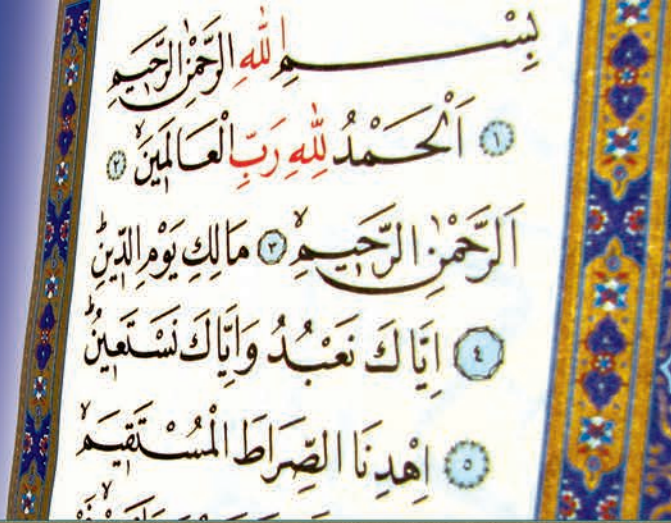 بِسْمِ اللهِ الرَّحْمٰنِ الرَّحِيمِ
١ اَلْحَمْدُ لِلّٰهِ رَبِّ الْعَالَمِينَۙ ٢
اَلرَّحْمٰنِ الرَّحِيمِۙ ٣ مَالِكِ يَوْمِ الدِّينِۜ
٤ اِيَّاكَ نَعْبُدُ وَاِيَّاكَ نَسْتَعِينُۜ
٥ اِهْدِنَا الصِّرَاطَ الْمُسْتَقِيمَۙ